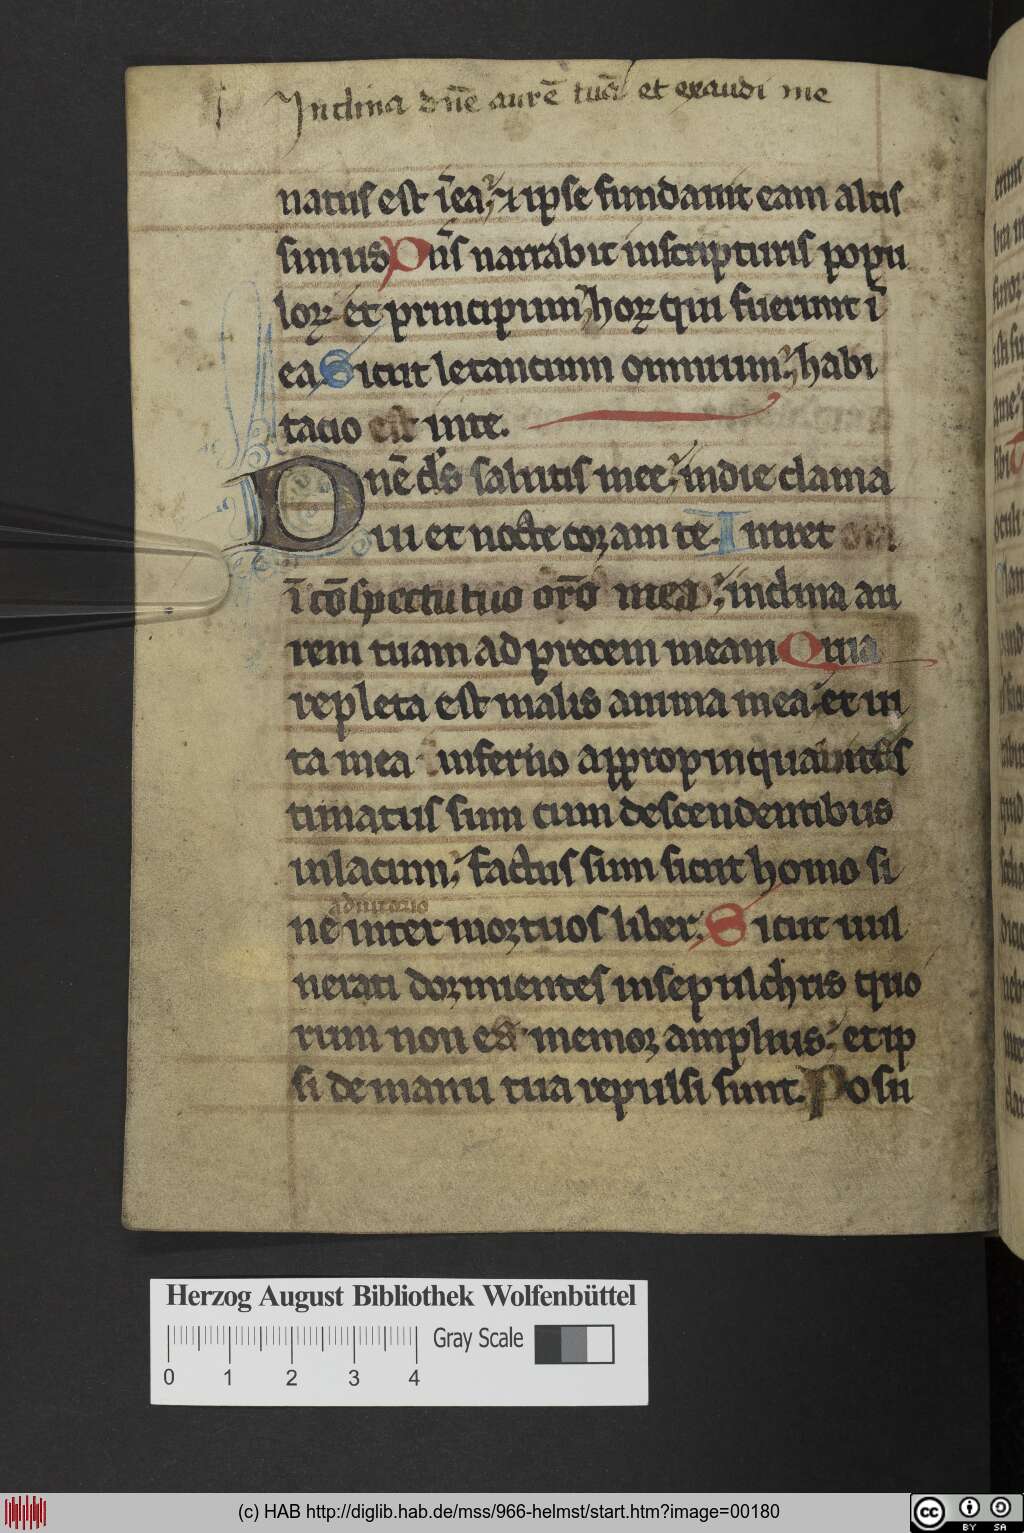 Inclina dn̄e aurē tuā et exaudi me
natus est ī ea ⁊ ipse fundauit eam altis
simus Dn̄s narrabit in scripturis popu
loꝝ et principum hoꝝ qui fuerunt ī
ea Sicut letancium omnium habi
tacio est in te.
Dn̄e ds salutis mee in die clama
ui et nocte coram te. Intret
ī cōspectu tuo orō mea inclina au
rem tuam ad precem meam Quia
repleta est malis anima mea et ui
ta mea inferno appropinquauit Es
timatus sum cum descendentibus
in lacum factus sum sicut homo si
adiutorio
ne inter mortuos liber. Sicut uul
nerati dormientes in sepulchris quo
rum non es memor amplius et ip
si de manu tua repulsi sunt. Posu
Herzog August Bibliothek Wolfenbüttel
Gray Scale
0 1 2 3 4
(c) HAB http://diglib.hab.de/mss/966-helmst/start.htm?image=00180
cc BY SA